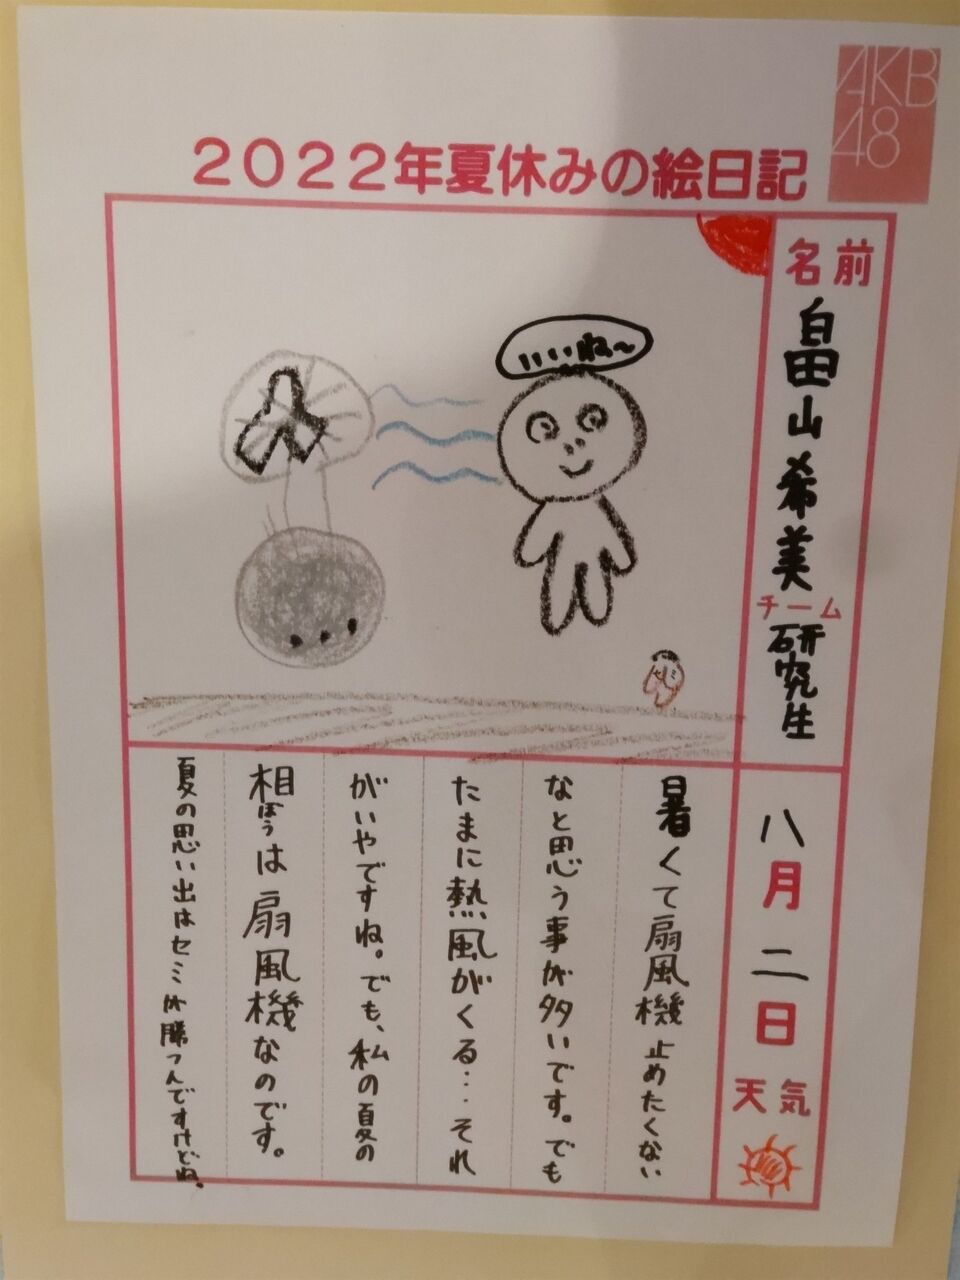 AKB
48
2022年夏休みの絵日記
名前
畠山希美
チーム
研究生
いいね〜
セミ
八月二日
天気
暑くて扇風機止めたくない
なと思う事が多いです。でも
たまに熱風がくる…それ
がいやですね。でも、私の夏の
相ぼうは扇風機なのです。
夏の思い出はセミが勝つんですけどね。